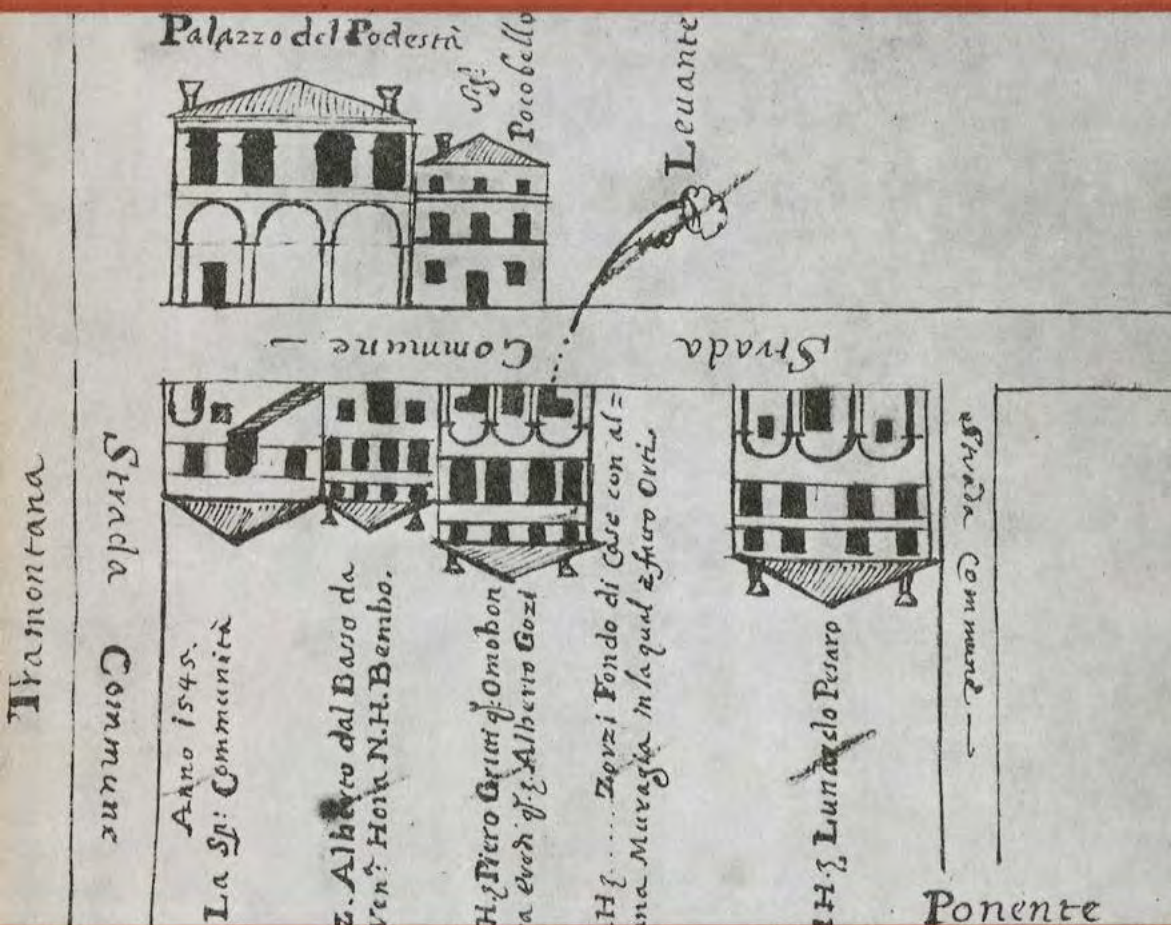 Palazzo del Podestà
Sig.
Pocobello
Levante
Strada Commune
Tramontana
Strada Commune
Anno 1545.
La Sp: Communità
Z. Alberto dal Basso da
Ven: Hora N.H. Bembo.
H Piero Gritti q. Omobon
a eredi q. Alberto Gozi
H ..... Zorzi Fondo di Case con al=
una Muragia in la qual è furo Orti.
H Lunardo Pesaro
Strada Commune
Ponente